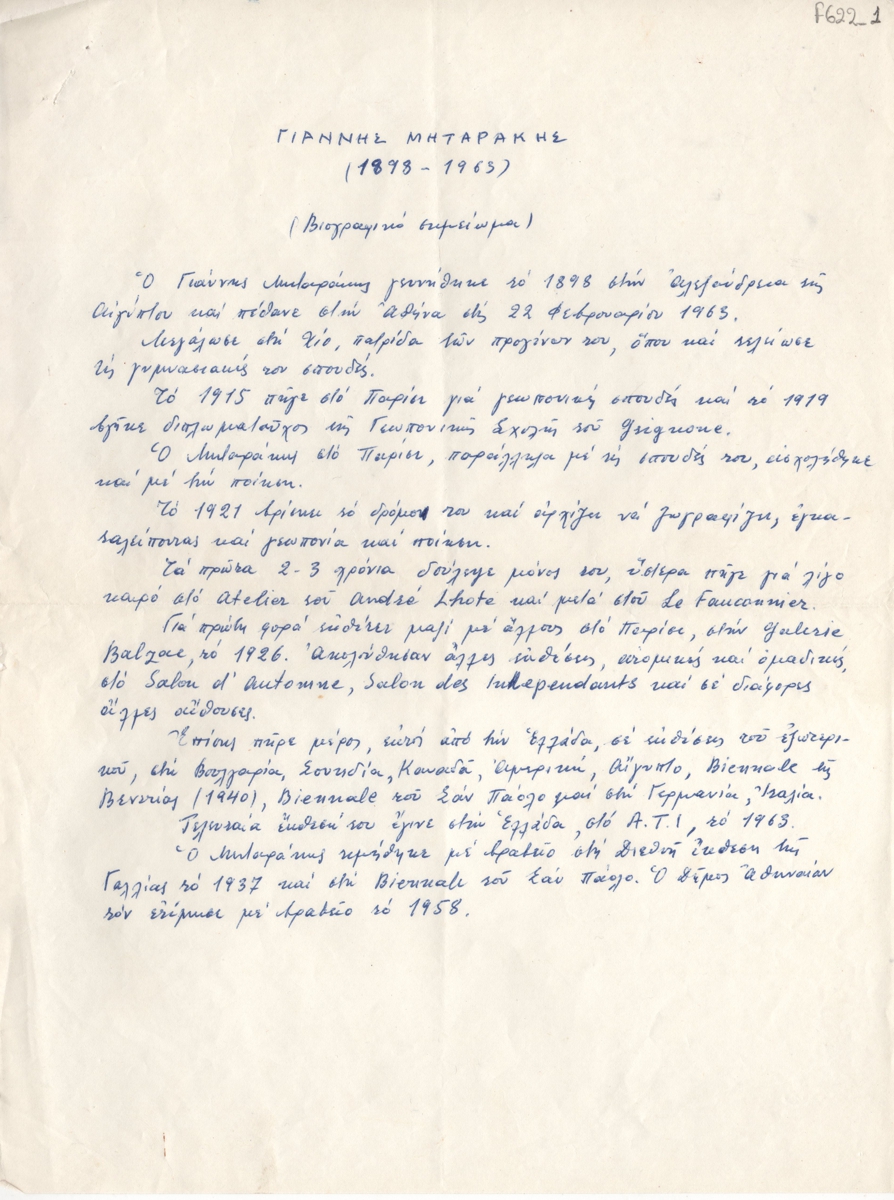 F622_1
ΓΙΑΝΝΗΣ ΜΗΤΑΡΑΚΗΣ
(1898 - 1963)
(Βιογραφικό σημείωμα)
Ὁ Γιάννης Μηταράκης γεννήθηκε τό 1898 στήν Ἀλεξάνδρεια τῆς
Αἰγύπτου καί πέθανε στήν Ἀθήνα στίς 22 Φεβρουαρίου 1963.
Μεγάλωσε στή Χίο, πατρίδα τῶν προγόνων του, ὅπου καί τελείωσε
τίς γυμνασιακές του σπουδές.
Τό 1915 πῆγε στό Παρίσι γιά γεωπονικές σπουδές καί τό 1919
βγῆκε διπλωματοῦχος τῆς Γεωπονικῆς Σχολῆς τοῦ Grignone.
Ὁ Μηταράκης στό Παρίσι, παράλληλα μέ τίς σπουδές του, ἀσχολήθηκε
καί μέ τήν ποίηση.
Τό 1921 βρίσκει τό δρόμο του καί ἀρχίζει νά ζωγραφίζει, ἐγκα-
ταλείποντας καί γεωπονία καί ποίηση.
Τά πρῶτα 2-3 χρόνια δούλεψε μόνος του, ὕστερα πῆγε γιά λίγο
καιρό στό Atelier τοῦ André Lhote καί μετά στοῦ Le Fauconnier.
Γιά πρώτη φορά ἐκθέτει μαζί μέ ἄλλους στό Παρίσι, στήν Galerie
Balzac, τό 1926. Ἀκολούθησαν ἄλλες ἐκθέσεις, ἀτομικές καί ὁμαδικές,
στό Salon d' Automne, Salon des Independants καί σέ διάφορες
ἄλλες αἴθουσες.
Ἐπίσης πῆρε μέρος, ἐκτός ἀπό τήν Ἑλλάδα, σέ ἐκθέσεις τοῦ ἐξωτερι-
κοῦ, στή Βουλγαρία, Σουηδία, Καναδᾶ, Ἀμερική, Αἴγυπτο, Biennale τῆς
Βενετίας (1940), Biennale τοῦ Σάν Πάολο καί στή Γερμανία, Ἰταλία.
Τελευταία ἔκθεσή του ἔγινε στήν Ἑλλάδα, στό Α.Τ.Ι, τό 1963.
Ὁ Μηταράκης τιμήθηκε μέ βραβεῖο στή Διεθνῆ ἔκθεση τῆς
Γαλλίας τό 1937 καί στή Biennale τοῦ Σάν Πάολο. Ὁ Δῆμος Ἀθηναίων
τόν ἐτίμησε μέ βραβεῖο τό 1958.